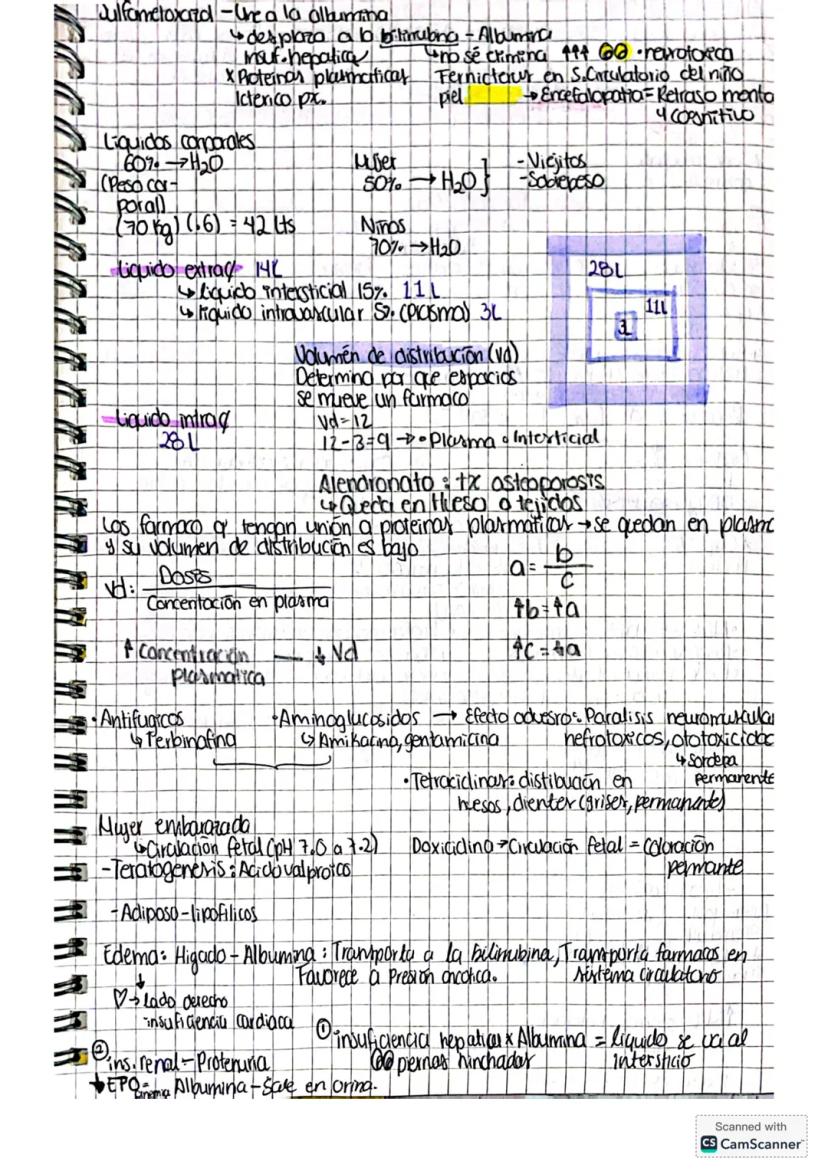 Sulfametoxazol - Une a la albumina
↳ desplaza a la bilirrubina - Albumina
insuf. hepatica ↳ no se elimina ↑↑↑ • neurotoxica
x Proteinas plasmaticas Fernicterus en S. Circulatorio del niño
Icterico px. piel → Encefalopatia = Retraso mental
y cognitivo
Liquidos corporales
60% → H2O Mujer - Viejitos
(Peso cor- 50% → H2O } - Sobrepeso
poral)
(70 kg) (.6) = 42 Lts Niños
70% → H2O
Liquido extra 14L 28L
↳ Liquido intersticial 15% 11 L 11L
↳ Liquido intravascular 5% (plasma) 3L 3
Volumén de distribución (Vd)
Determina por que espacios
se mueve un farmaco
Liquido intra Vd = 12
28 L 12-3=9 → • Plasma • Intersticial
Alendronato : tx osteoporosis
↳ Queda en Hueso o tejidos
Los farmaco q' tengan unión a proteinas plasmáticas → se quedan en plasma
y su volumen de distribución es bajo
a = b
c
Vd: Dosis
Concentación en plasma
↑b = ↑a
↑ Concentración — ↓ Vd ↑c = ↓a
plasmatica
• Antifugicos • Aminoglucosidos → Efecto adversro: Paralisis neuromuscular
↳ Terbinafina ↳ Amikacina, gentamicina nefrotoxicos, ototoxicidad
↳ Sordera
permanente
• Tetraciclinas: distibución en
huesos, dientes (grises, permanentes)
Mujer embarazada
↳ Circulación fetal (pH 7.0 a 7.2) Doxiciclina → Circulación fetal = Coloración
permante
- Teratogenesis : Acido valproico
- Adiposo - lipofilicos
Edema: Higado - Albumina : Transporta a la bilirrubina, Transporta farmacos en
Favorece a Presión oncotica. sistema circulatorio
♡ → lado derecho
insuficiencia cardiaca
① insuficiencia hepatica x Albumina = liquido se va al
piernas hinchadas intersticio
② ins. renal - Proteinuria
↓ EPO = anemia Albumina - Sale en orina.
Scanned with
CS CamScanner